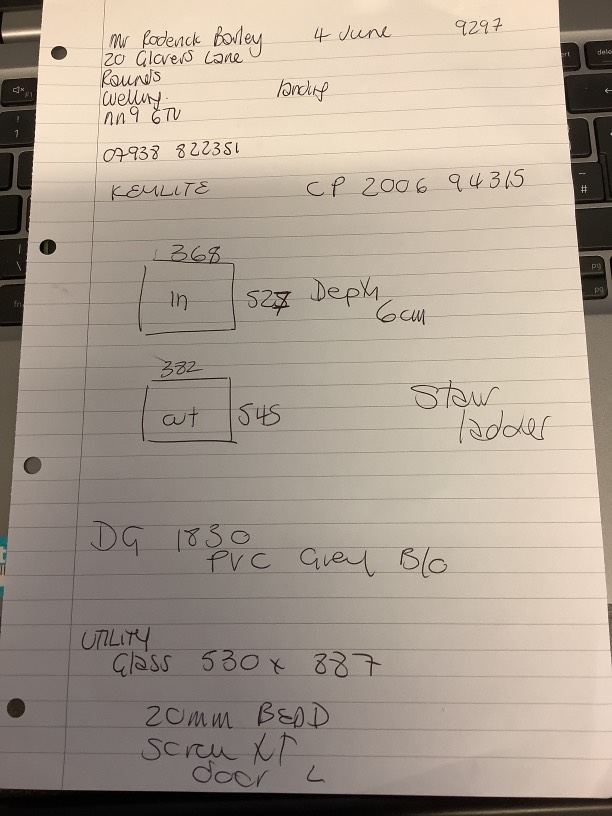 Mr Roderick Barley 4 June 9297
20 Glovers Lane
Raunds
Welling landing
nn9 6TU
07938 822351
KEMLITE CP 2006 94315
368
In 527 Depth
6cm
382
out 545
Stair
ladder
DG 1830
PVC Grey B/O
UTILITY
Glass 530 x 887
20mm BEAD
Screw
door